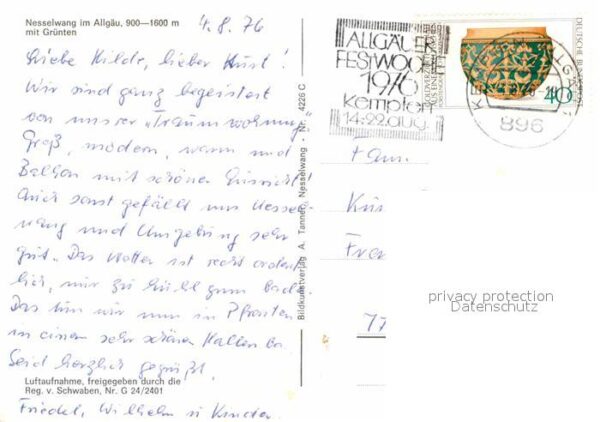 Nesselwang im Allgäu, 900—1600 m
mit Grünten
4.8.76
Liebe Hilde, lieber Kurt!
Wir sind ganz begeistert
von unserer "Traumwohnung"
Groß, modern, warm und
Balkon mit schöner Aussicht!
Auch sonst gefällt uns Nessel-
wang und Umgebung sehr
gut. Das Wetter ist recht ordent-
lich, nur zu kühl zum Baden.
Das tun wir nun in Pfronten
in einem sehr schönen Hallenba
Seid herzlich gegrüßt
Friedel, Wilhelm u Kinder
Luftaufnahme, freigegeben durch die
Reg. v. Schwaben, Nr. G 24/2401
Bildkunstverlag A. Tanner, Nesselwang - Nr. 4226 C
ALLGÄUER
FESTWOCHE
1976
Kempten
14-22.aug.
DEUTSCHE BUNDESPOST
40
896
Fam.
Ku
Fra
77
privacy protection
Datenschutz